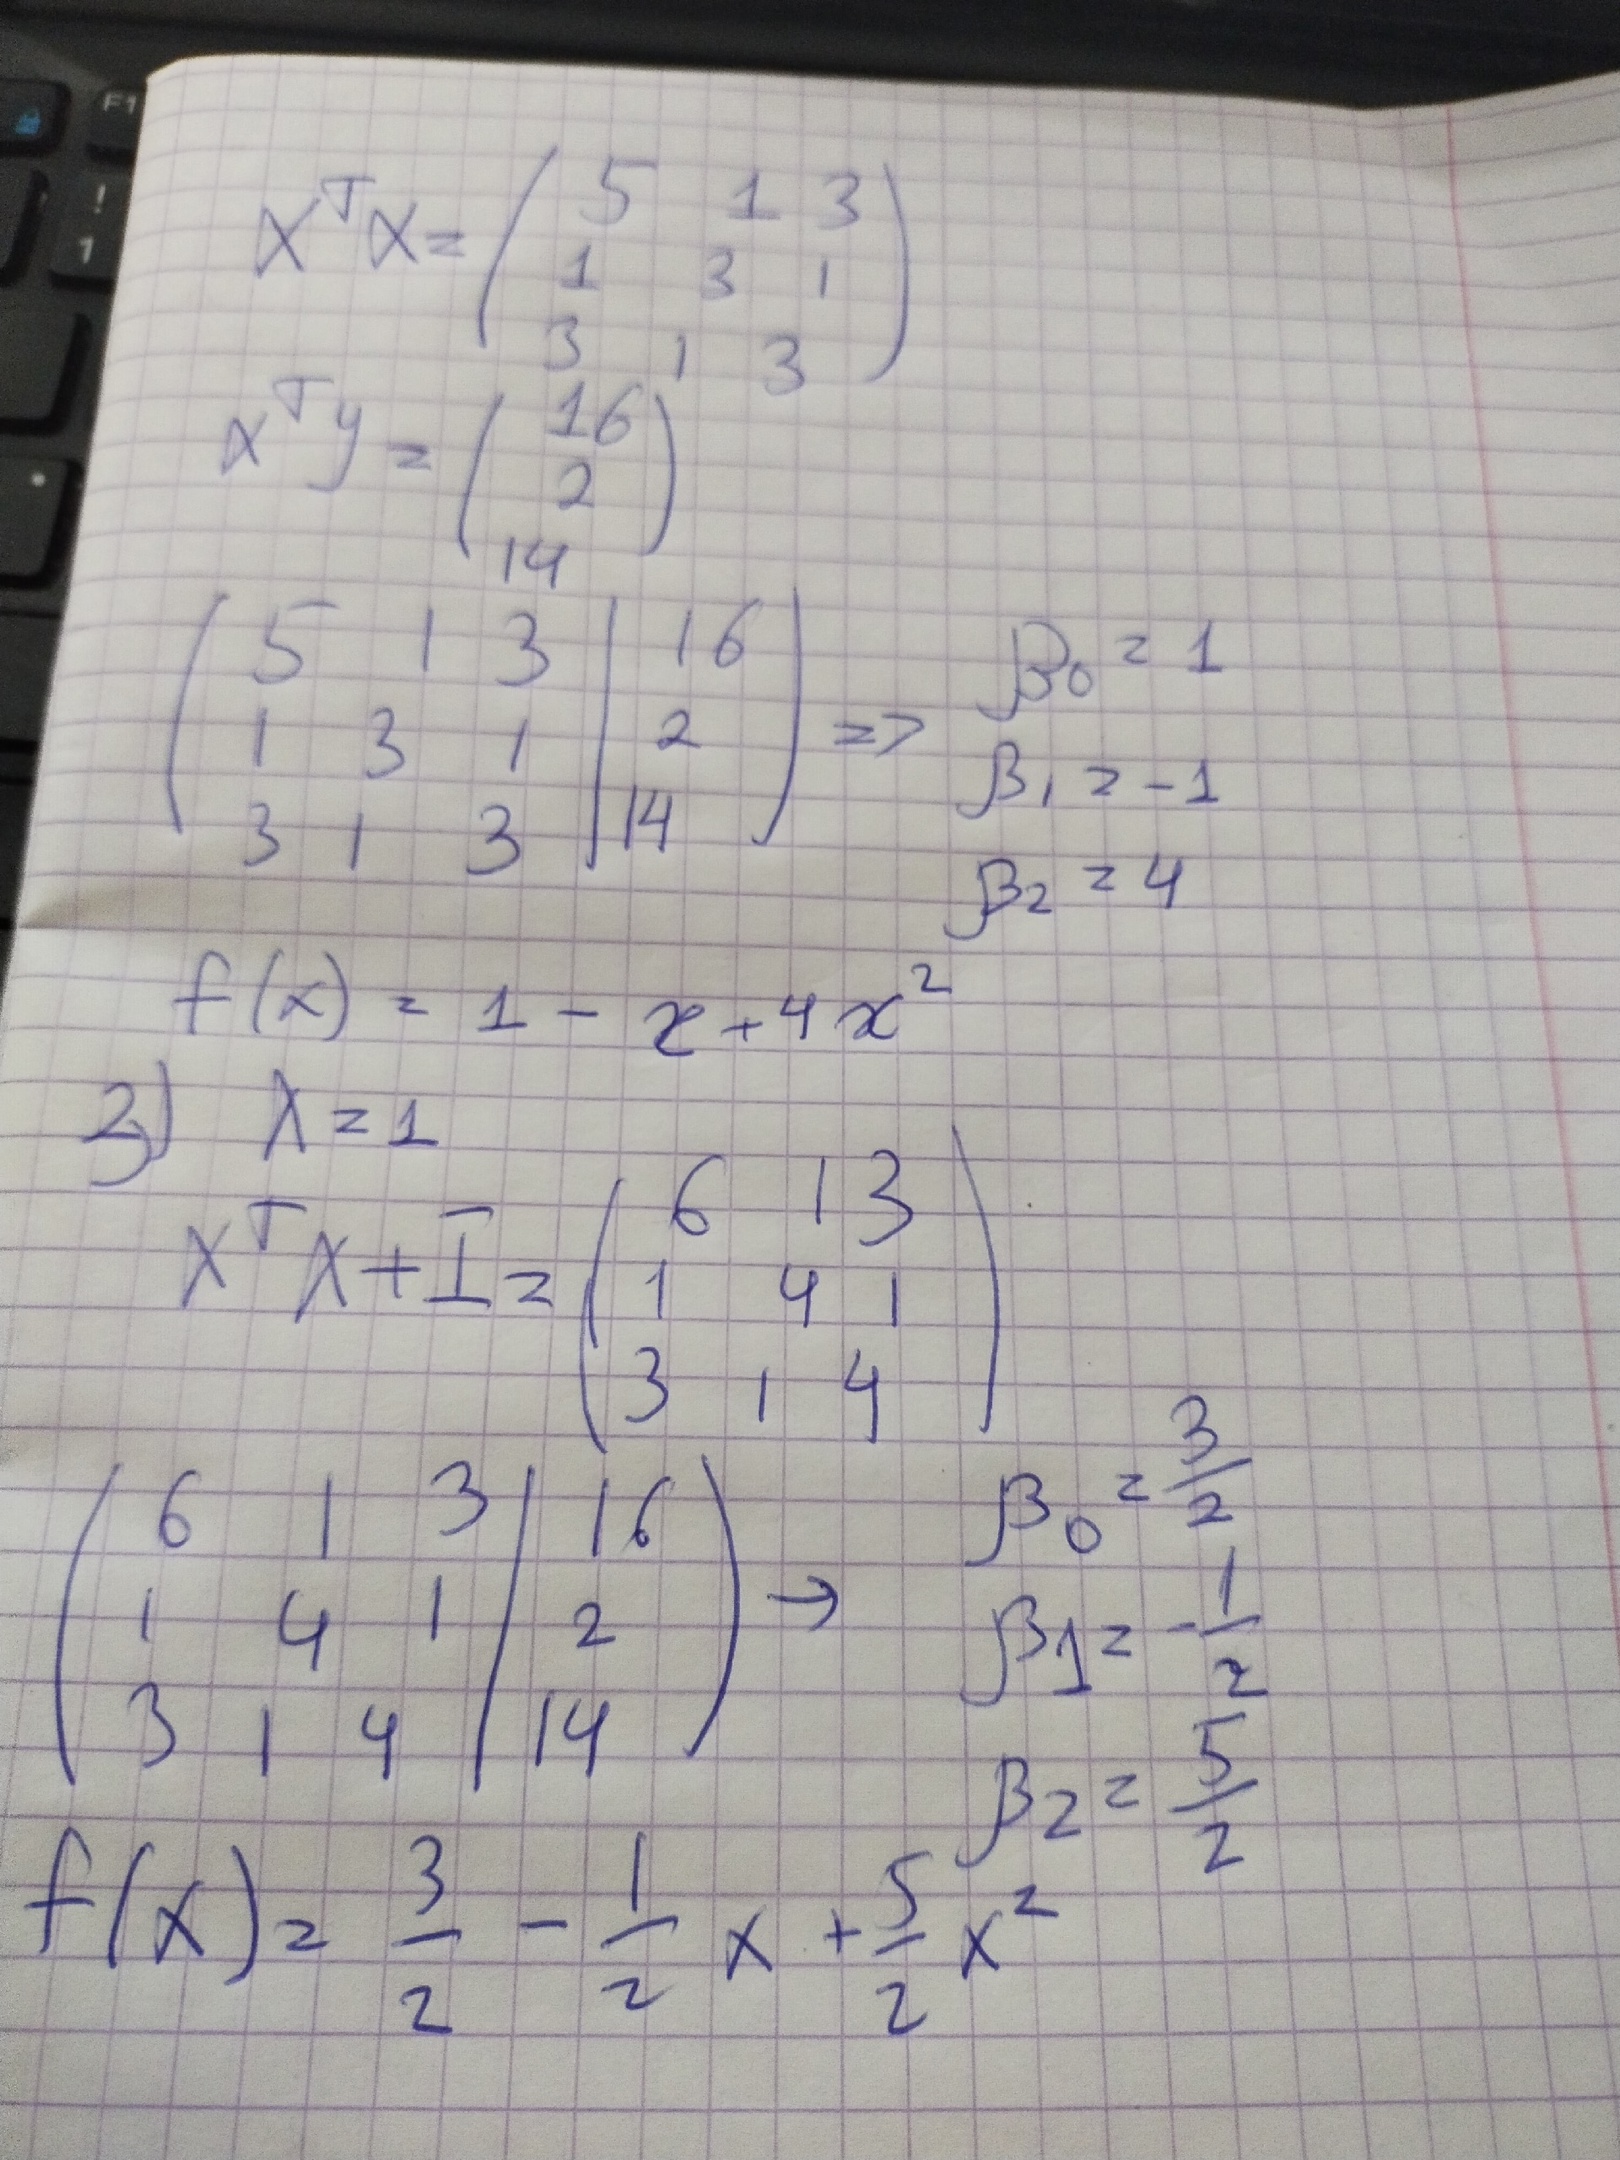 F1
!
1
X^T X = ( 5 1 3
1 3 1
3 1 3 )
X^T y = ( 16
2
14 )
( 5 1 3 | 16
1 3 1 | 2
3 1 3 | 14 ) => β0 = 1
β1 = -1
β2 = 4
f(x) = 1 - x + 4x²
2) λ = 1
X^T X + I = ( 6 1 3
1 4 1
3 1 4 )
( 6 1 3 | 16
1 4 1 | 2
3 1 4 | 14 ) → β0 = 3/2
β1 = -1/2
β2 = 5/2
f(x) = 3/2 - 1/2 x + 5/2 x²